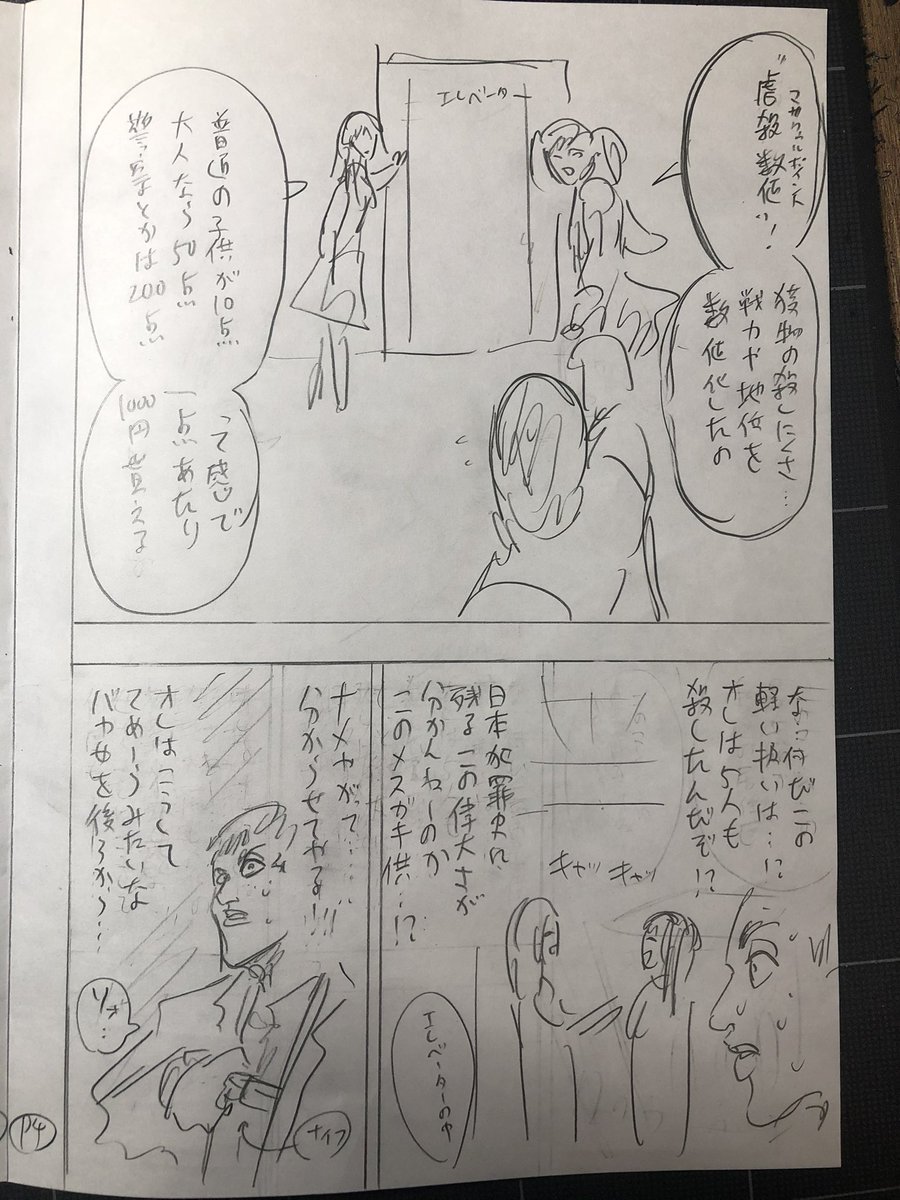 マーダーポイント
"虐殺数値"!
獲物の殺しにくさ…
戦力や地位を
数値化したの
エレベーター
普通の子供が10点
大人なら50点
警察とかは200点
って感じで
一点あたり
1000円貰える
な…何だこの
軽い扱いは…!?
オレは5人も
殺したんだぞ!?
キャッ キャッ
日本犯罪史に
残るこの偉大さが
分かんねーのか
このメスガキ供…!?
エレベーターの中
ナメやがって…
分からせてやる!!!
オレはこうして
てめーらみたいな
バカ女を後ろから…
ソォ…
ナイフ
P4